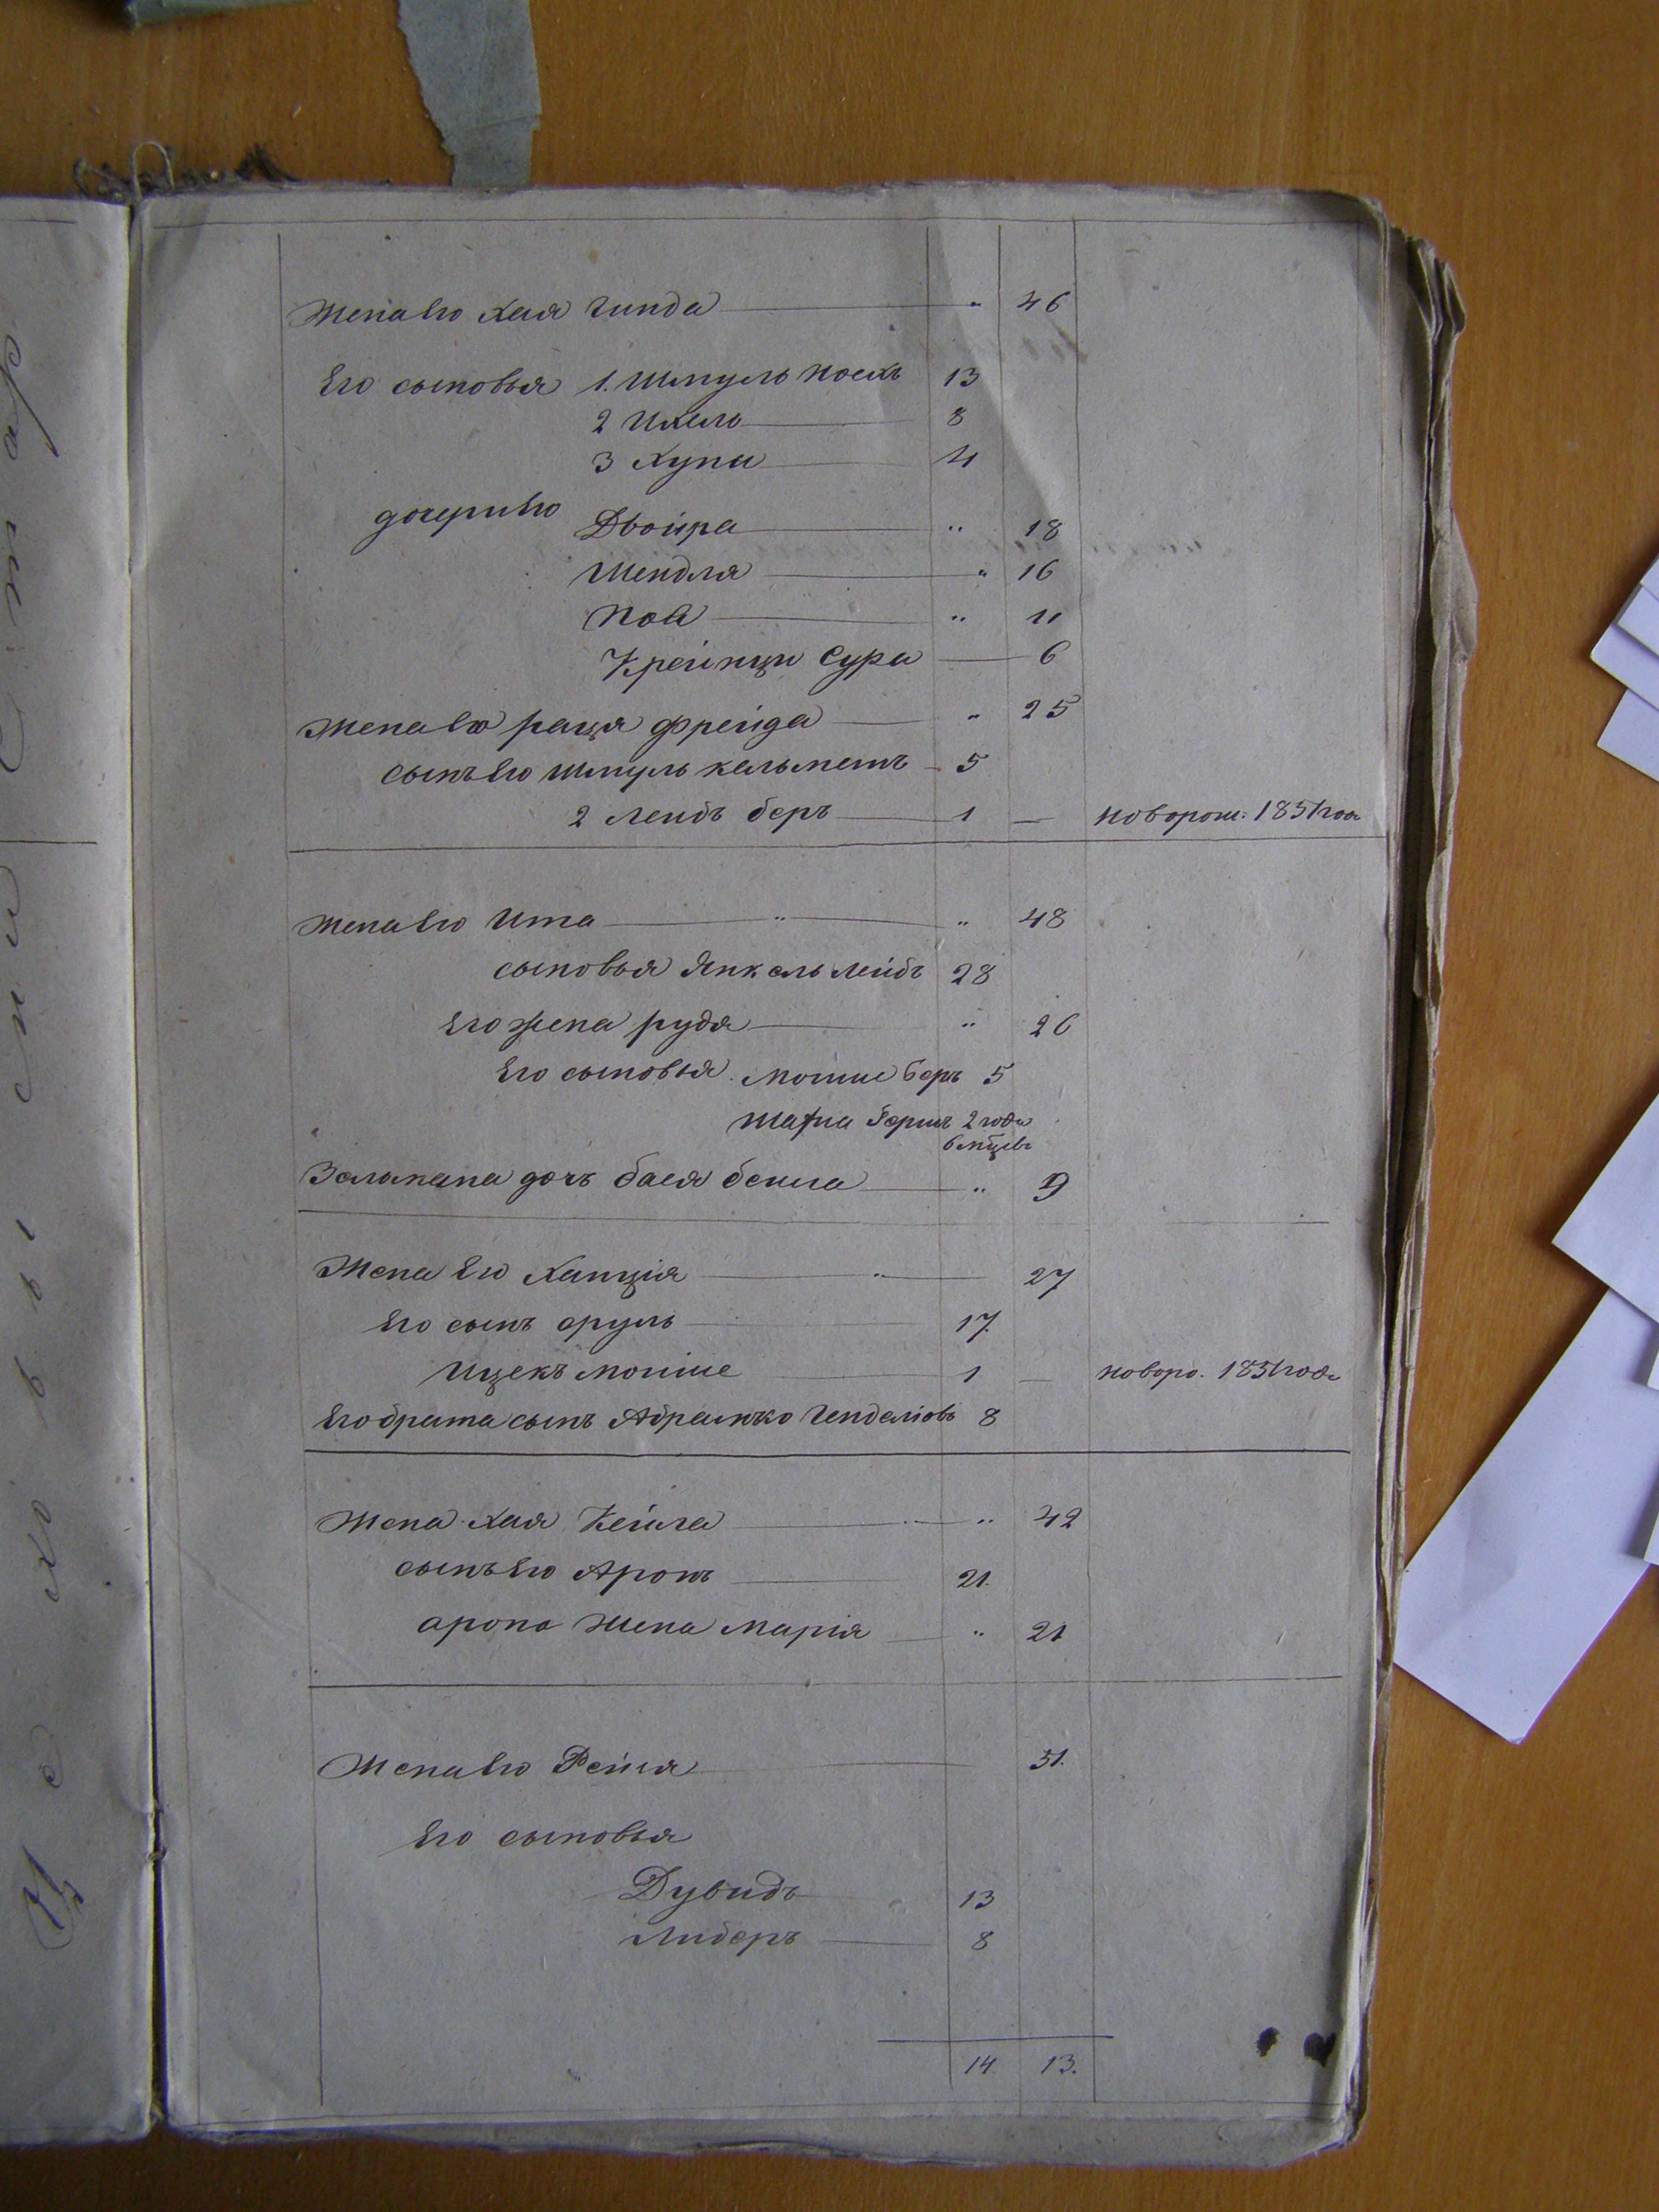 Жена Его Хая Гинда " 46
Его сыновья 1. Шмуль Носкъ 13
2 Ихель 8
3 Хуни 4
дочери Его Двойра " 18
Шендля " 16
Нова " 11
Крейнци Сура 6
Жена Его Раця Фрейда " 25
сынъ Его Шмуль Кальменъ 5
2 Лейбъ Беръ 1 — новорож: 1851 года
Жена Его Ита " " 48
сыновья Янкель Лейбъ 28
Его жена Рудя " 26
Его сыновья Мошше Беръ 5
Герш 2 года
6 мцевъ
Залмана дочь Бася Бейла " 9
Жена Его Ханція " 27
Его сынъ Сруль 17.
Ицекъ Мошше 1 — новоро. 1851 года
Его брата сынъ Абрамко 8
Жена Хая Кейла " 42
сынъ Его Аронъ 21.
арона Жена Марія " 21
Жена Его Рейзя 31.
Его сыновья
Дувидъ 13
Либеръ 8
14. 13.